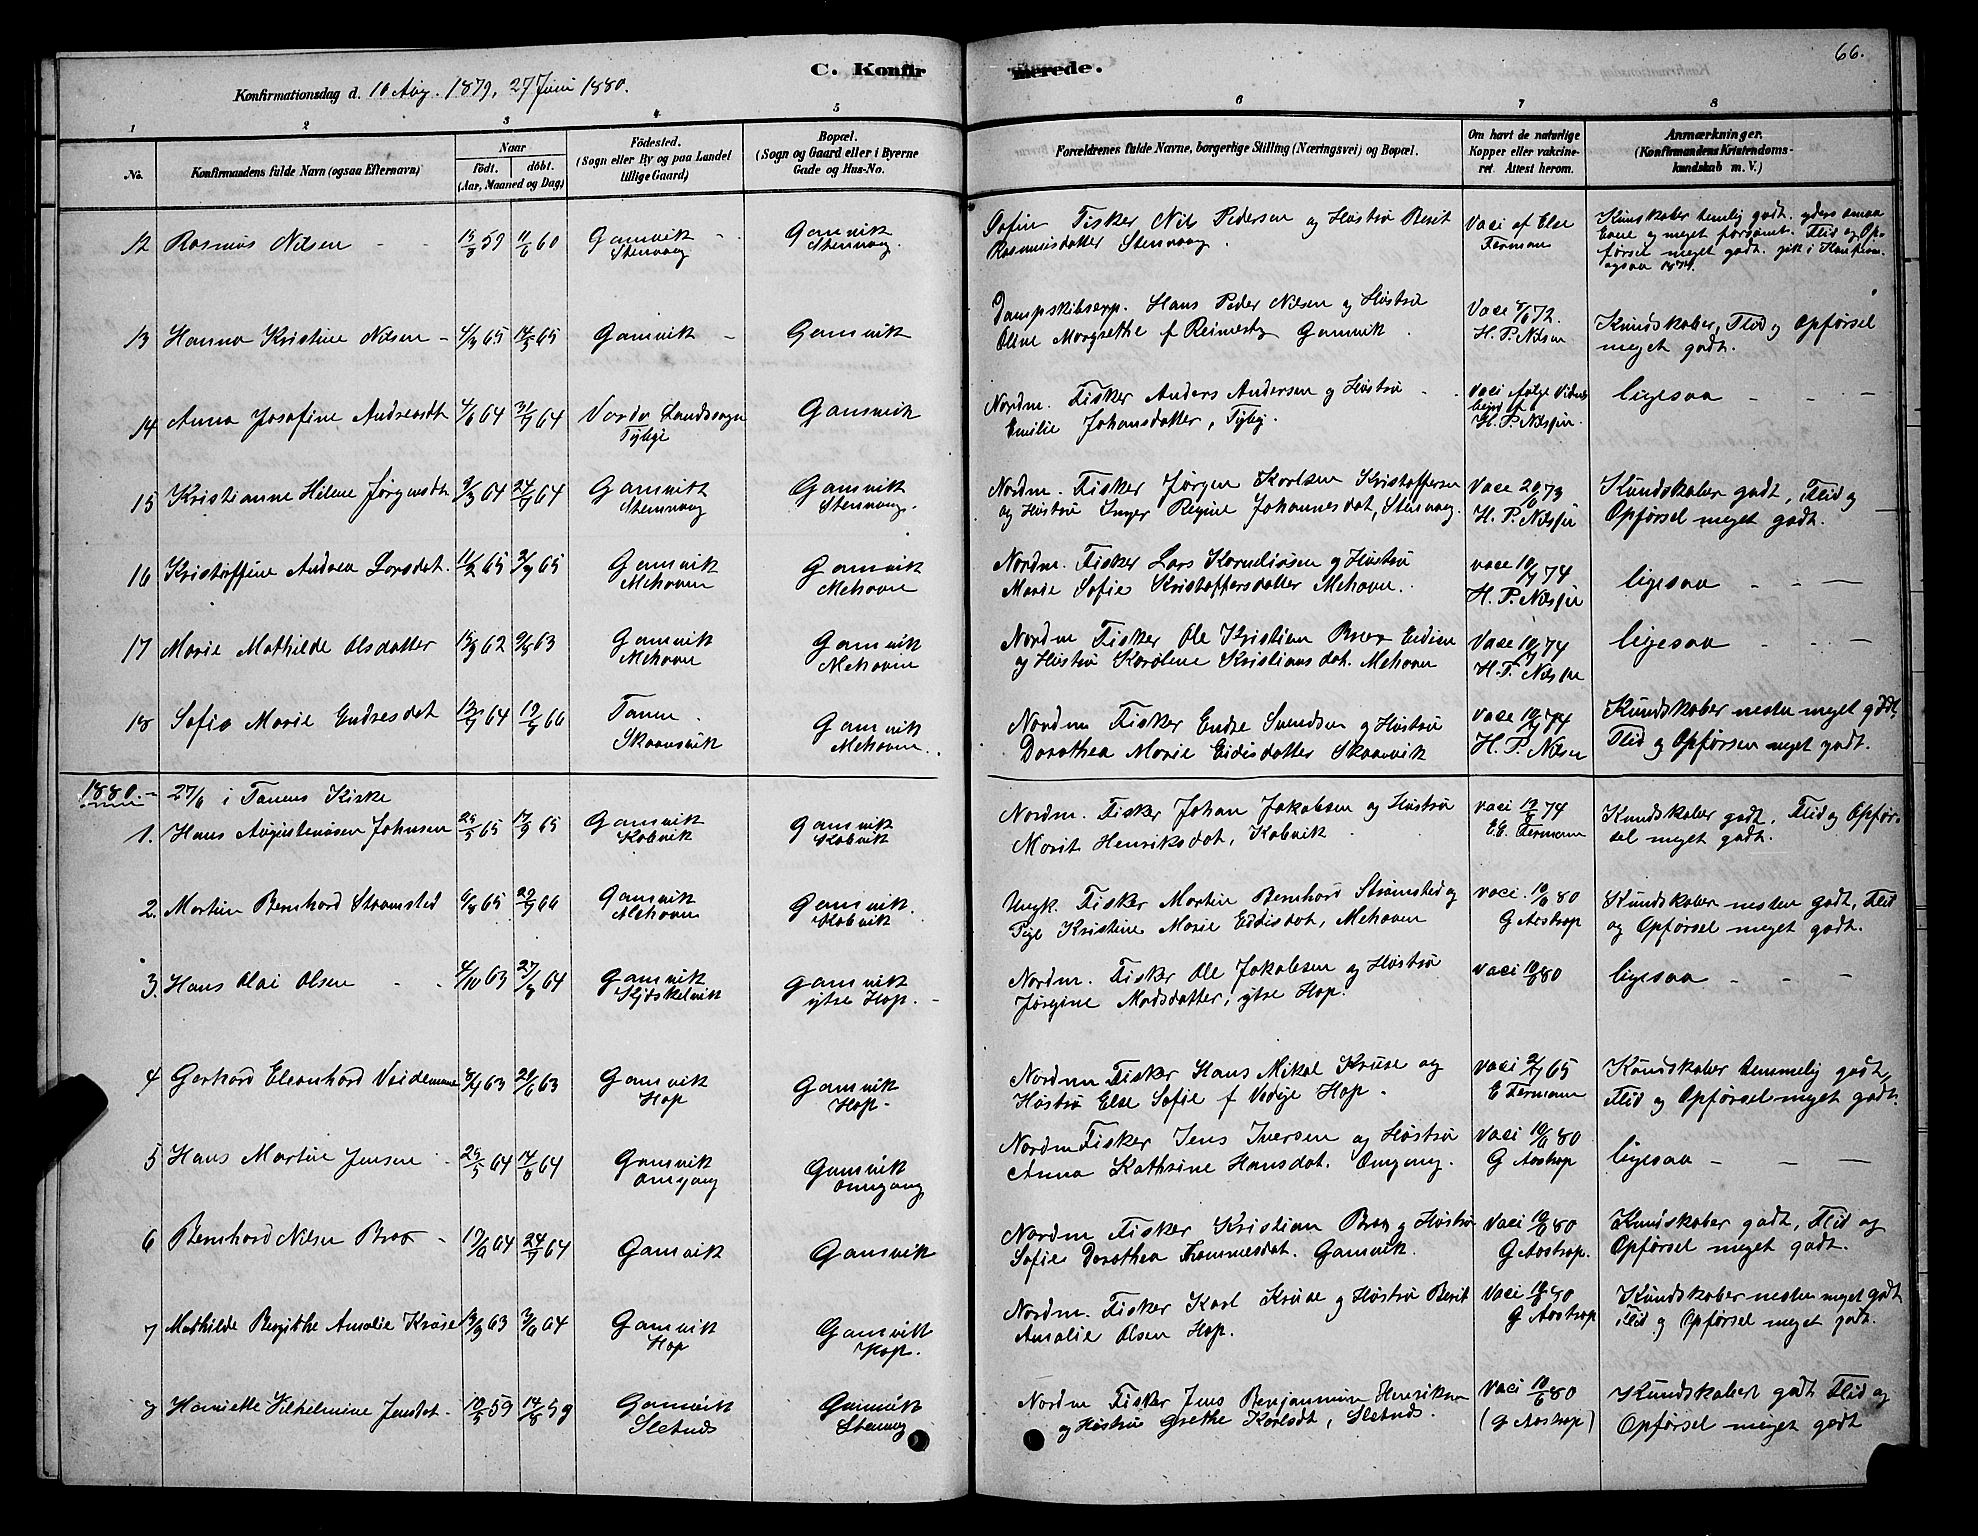 66.
C. Konfirmerede.
Konfirmationsdag d. 10 Aug. 1879, 27 Juni 1880.
1 2 3 4 5 6 7 8
No.
Konfirmandens fulde Navn (ogsaa Efternavn)
Naar
födt. döbt.
(Aar, Maaned og Dag)
Födested.
(Sogn eller By og paa Landet
tillige Gaard)
Bopæl.
(Sogn og Gaard eller i Byerne
Gade og Hus-No.
Forældrenes fulde Navne, borgerlige Stilling (Næringsvei) og Bopæl.
Om havt de naturlige
Kopper eller vakcine-
ret. Attest herom.
Anmærkninger.
(Konfirmandens Kristendoms-
kundskab m. V.)
12 Rasmus Nilsen 59 11/6 60 Gamvik Gamvik
Stenvaag Stenvaag.
Søfin Fisker Nils Pedersen og Hustru Berit
Rasmusdatter Stenvaag.
Vacc af Else
Fermann
Kundskaber temlig godt.
Evne og meget forsømt. Flid og Op-
førsel meget godt. gik i
ogsaa 1874.
13 Hanna Kristine Nilsen 4/3 65 14/5 65 Gamvik Gamvik
Dampskibsexp. Hans Peder Nilsen og Hustru
Oline Margrethe f Reimesby Gamvik.
Vacc 72.
H. P. Nilsen
Kundskaber, Flid og Opførsel
meget godt.
14 Anna Josefine Andreasdt 64 31/7 64 Vardø Landssogn Gamvik
Nordm. Fisker Anders Andersen og Hustru
Emilie Johansdatter,
Vacc ifølge Vidnes
byrd af
H. P. Nilssen.
ligesaa
15 Kristianne Helene Jørgensdt 9/3 64 24/7 64 Gamvik Gamvik
Stenvaag Stenvaag.
Nordm. Fisker Jørgen Karlsen Kristoffersen
og Hustru Inger Regine Johannesdat, Stenvaag.
Vacc 73
H. P. Nilssen
Kundskaber godt, Flid og
Opførsel meget godt.
16 Kristoffine Andrea Larsdat. 11/2 65 65 Gamvik Gamvik
Mehavn Mehavn
Nordm. Fisker Lars Korneliussen og Hustru
Marie Sofie Kristoffersdatter Mehavn.
Vacc 74
H. P. Nilssen
ligesaa
17 Marie Mathilde Olsdatter 62 63 Gamvik Gamvik
Mehavn Mehavn
Nordm Fisker Ole Kristian
og Hustru Karoline Kristiansdat. Mehavn
Vacc 74
H. P. Nilssen
ligesaa
18 Sofie Marie Endresdat 64 66 Tanen Gamvik
Skaanvik Mehavn.
Nordm Fisker Endre Svendsen og Hustru
Dorothea Marie Eidisdatter Skaanvik
Vacc 74
H. P. Nilsen
Kundskaber nesten meget godt,
Flid og Opførsen meget godt.
1880. 27/6 i Tanens Kirke
1. Hans Augustinusen Johnsen 65 17/9 65 Gamvik Gamvik
Kobvik Kobvik
Nordm. Fisker Johan Jakobsen og Hustru
Marit Henriksdat, Kobvik.
Vacc 74
E. Fermann
Kundskaber godt, Flid og Opfør-
sel meget godt.
2. Martin Bernhard Strømsted 65 66 Gamvik Gamvik.
Mehavn Kobvik
Ungk. Fisker Martin Bernhard Strømsted og
Pige Kristine Marie Eidisdat, Mehavn
Vacc. 80
G Aastrop
Kundskaber nesten godt, Flid
og Opførsel meget godt.
3. Hans Olai Olsen 4/10 63 27/3 64 Gamvik Gamvik
ytre Hop.
Nordm. Fisker Ole Jakobsen og Hustru
Jørgine Madsdatter, ytre Hop.
Vacc 80
ligesaa
4 Gerhard Eleonhard Veidemann 63 63 Gamvik Gamvik
Hop Hop.
Nordm Fisker Hans Mikal Kruse og
Hustru Else Sofie f Hop.
Vacc 65
E Fermann
Kundskaber temmelig godt,
Flid og Opførsel meget godt.
5 Hans Martin Jensen 64 64 Gamvik Gamvik
Omgang Omgang
Nordm Fisker Jens Iversen og Hustru
Anna Kathrine Hansdat. Omgang.
Vacc 80
G Aastrop
ligesaa
6 Bernhard Nilsen 64 24/7 64 Gamvik Gamvik
Nordm Fisker Kristian og Hustru
Sofie Dorothea Thommesdat. Gamvik.
Vacc 80
G Aastrop.
Kundskaber godt, Flid og
Opførsel meget godt.
7 Mathilde Bergithe Amalie Kruse 63 64 Gamvik Gamvik
Hop Hop.
Nordm. Fisker Karl Kruse og Hustru Berit
Amalie Olsen Hop.
Vacc 80
G Aastrop
Kundskaber nesten meget godt
Flid og Opførsel meget godt.
8 Henriette Vilhelmine Jensdat 10/5 59 14/8 59 Gamvik Gamvik
Sletnes Stenvaag
Nordm Fisker Jens Benjaminn Henriksen
og Hustru Grethe Karlsdt, Sletnes.
Vacc 80
(G Aastrop)
Kundskaber godt Flid og
Opførsel meget godt